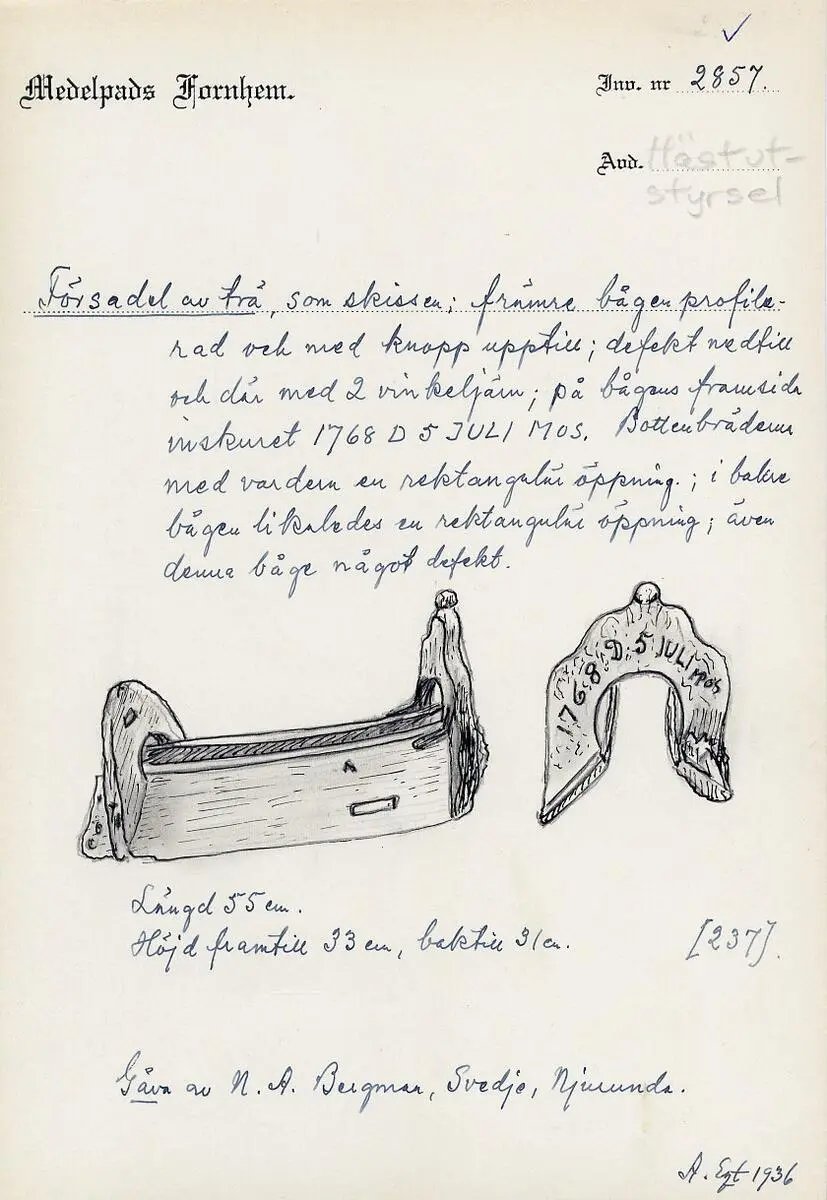 Medelpads Fornhem.
Inv. nr 2857.
Avd. Hästut-
styrsel
Försadel av trä, som skissen; främre bågen profile-
rad och med knopp upptill; defekt nedtill
och där med 2 vinkeljärn; på bågens framsida
inskuret 1768 D 5 JULI MOS. Bottenbräderna
med vardera en rektangulär öppning.; i bakre
bågen likaledes en rektangulär öppning; även
denna båge något defekt.
1768 D 5 JULI MOS
Längd 55 cm.
Höjd framtill 33 cm, baktill 31 cm.
[237].
Gåva av N. A. Bergman, Svedje, Njurunda.
A. Eqt 1936